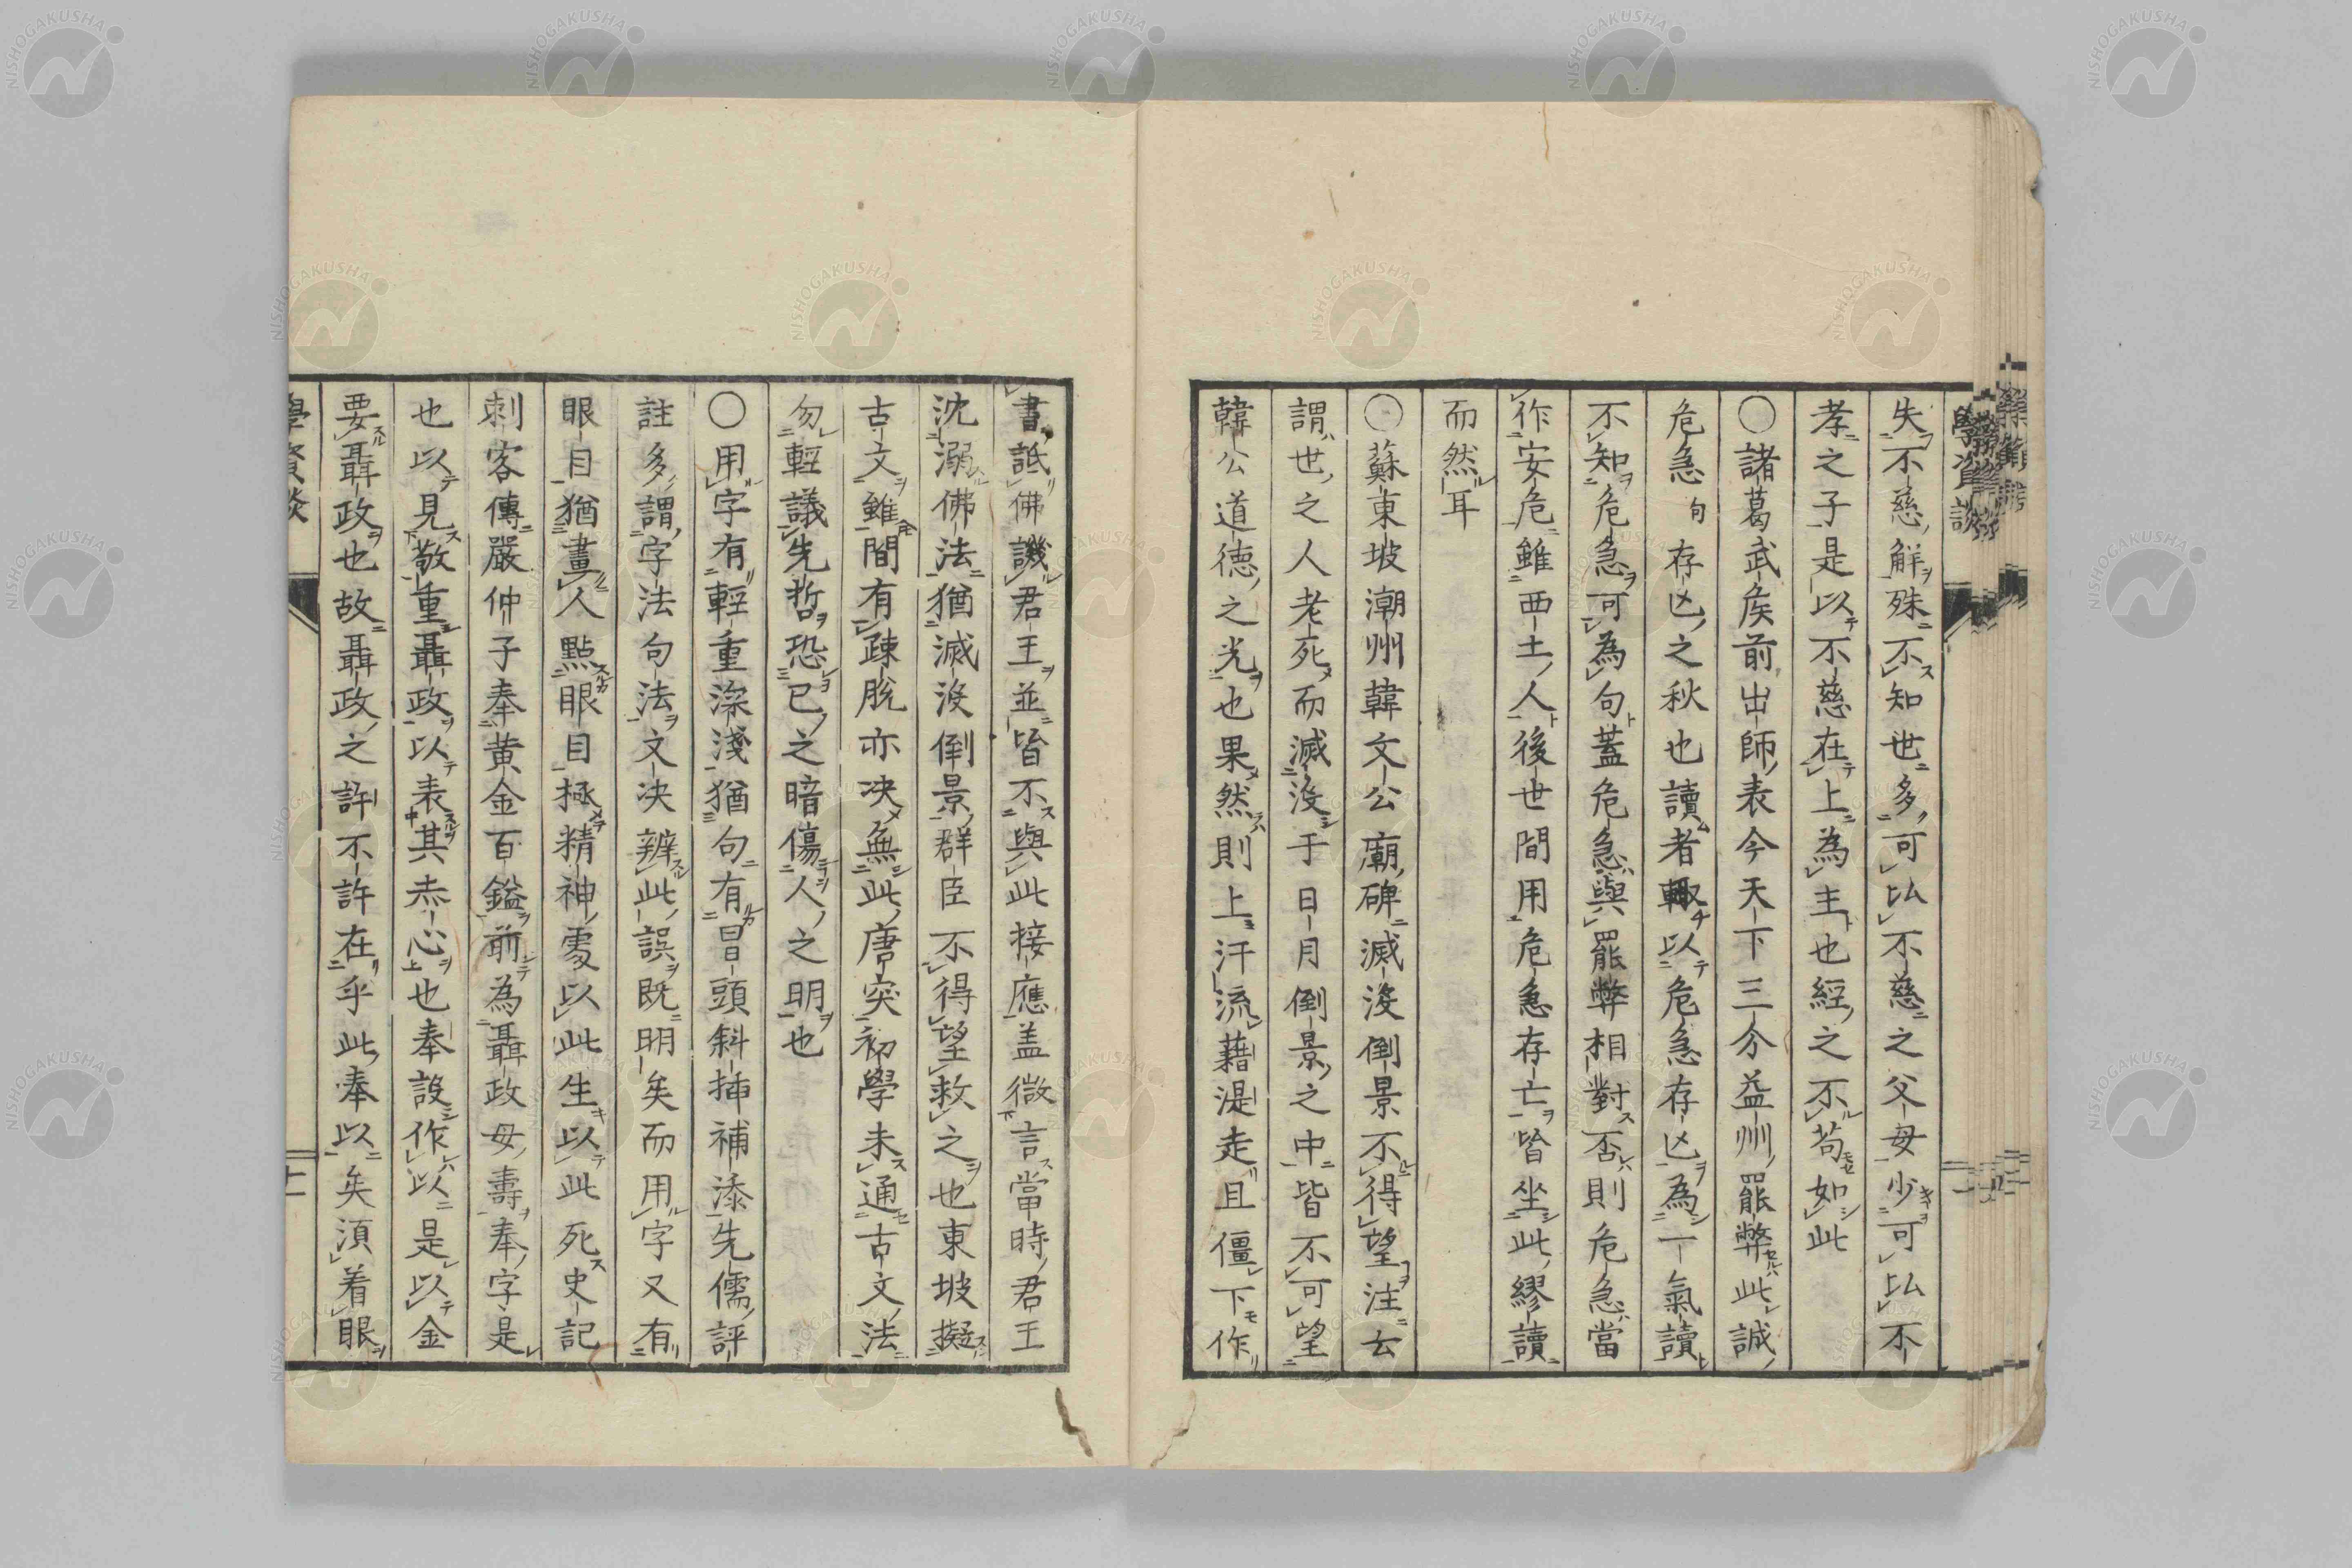 失不慈解殊不知世多可以不慈之父母少可以不
孝之子是以不慈在上為主也經之不苟如此
〇諸葛武侯前出師表今天下三分益州罷弊此誠
危急句存亡之秋也讀者輙以危急存亡為一氣讀
不知危急可為句蓋危急與罷弊相對否則危急當
作安危雖西土人後世間用危急存亡皆坐此繆讀
而然耳
〇蘇東坡潮州韓文公廟碑滅沒倒景不得望注云
謂世之人老死而滅沒于日月倒景之中皆不可望
韓公道德之光也果然則上汗流藉湜走且僵下作
書詆佛譏君王並皆不與此接應盖微言當時君王
沈溺佛法猶滅沒倒景群臣不得望救之也東坡擬
古文雖間有疎脫亦决無此唐突初學未通古文法
勿輕議先哲恐已之暗傷人之明也
〇用字有輕重深淺猶句有冒頭斜插補添先儒評
註多謂字法句法文决辨此誤既明矣而用字又有
眼目猶畫人點眼目極精神處以此生以此死史記
刺客傳嚴仲子奉黄金百鎰前為聶政母壽奉字是
也以見敬重聶政以表其赤心也奉設作以是以金
要聶政也故聶政之許不許在乎此奉以矣須着眼
學資談
十一
學資談
NISHOGAKUSHA